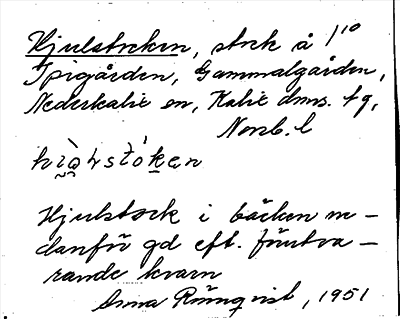 Hjulstocken, stock å 1/10
Spigården, Gammalgården,
Nederkalix sn, Kalix dms. fg,
Norrb. l
Hjulstock i bäcken ne-
danför gd eft. förutva-
rande kvarn
Anna Rönnqvist, 1951